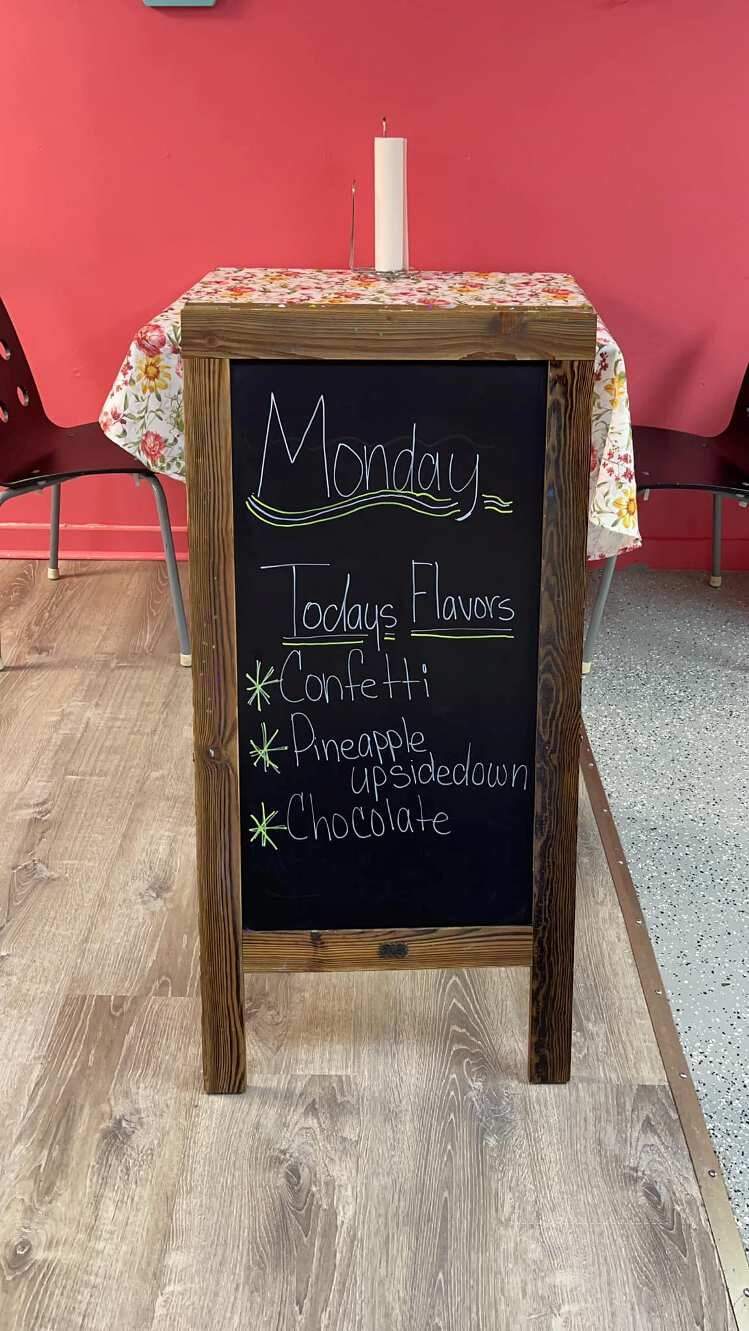 Monday
Todays Flavors
Confetti
Pineapple
upsidedown
Chocolate